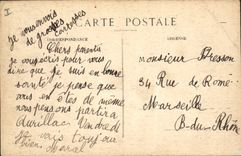 Je vous envoi
de grosses
carresses
CARTE POSTALE
CORRESPONDANCE
Chers parents
je vous écris pour vous
dire que je suis en bonne
santé je pense que
vous en êtes de même
nous pensons partir a
Aurillac Vendredi
Je vais toujours
bien
Monsieur
34 Rue de Rome
Marseille
B-du-Rhône